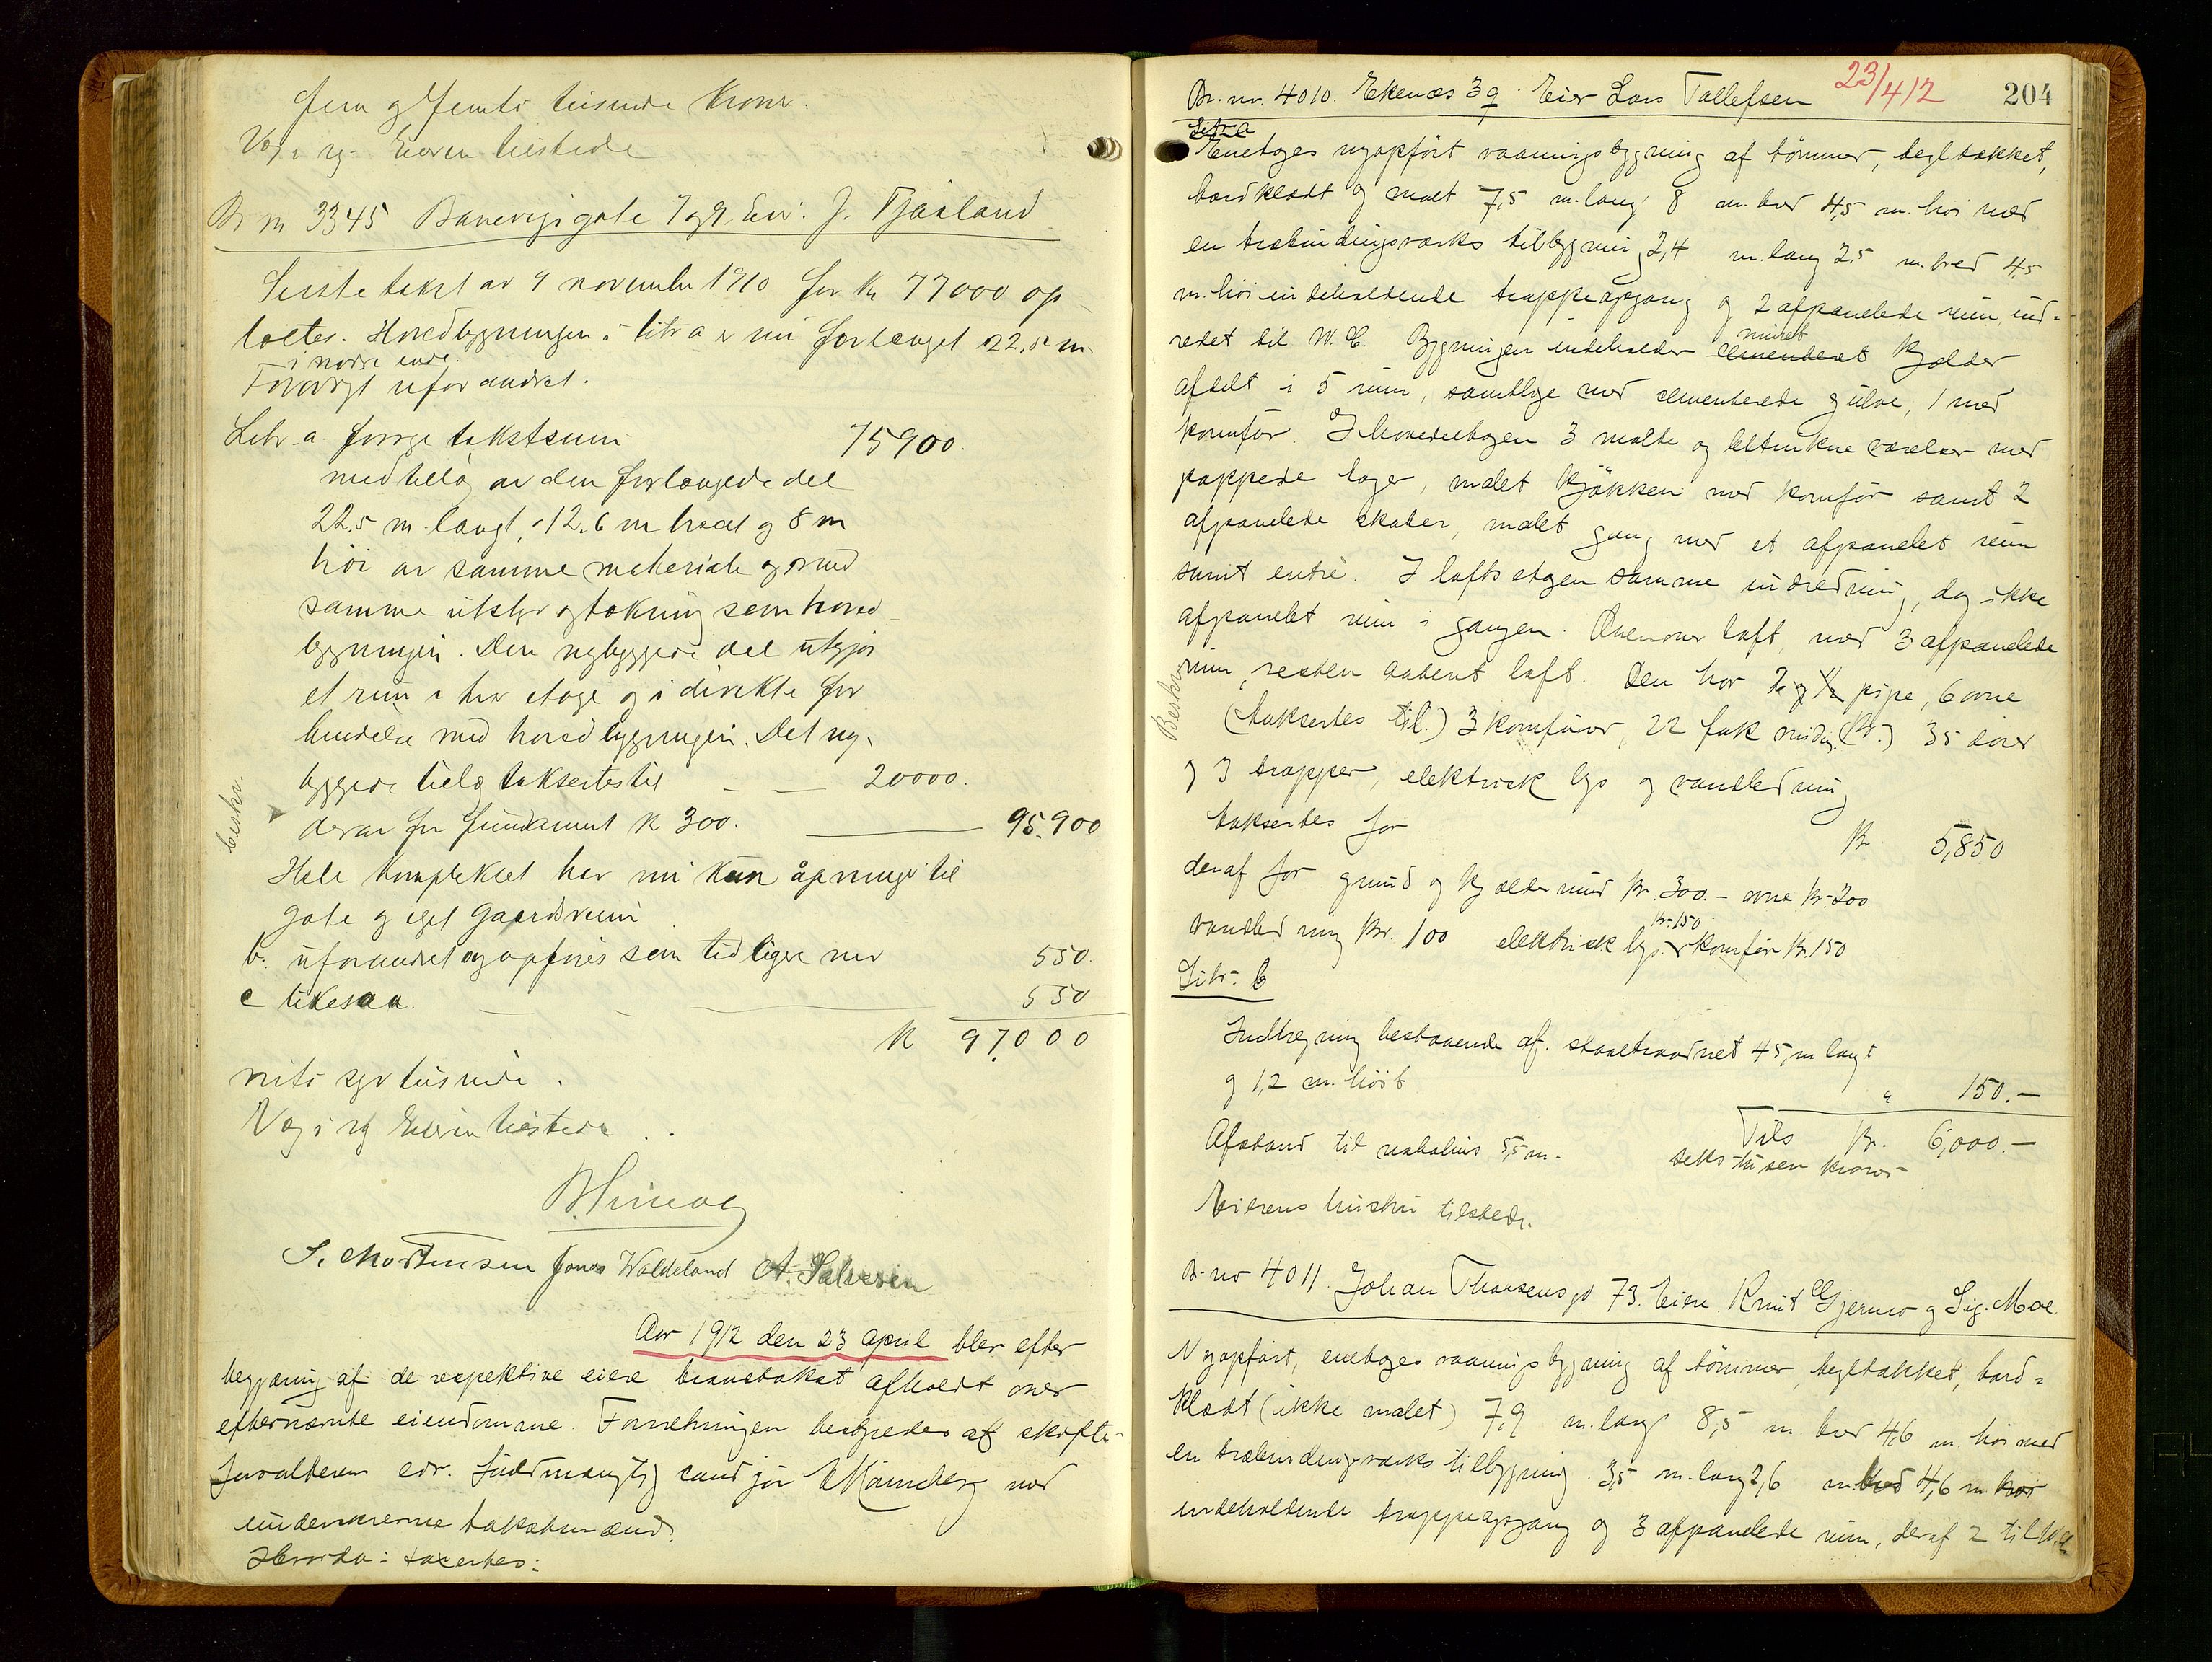 fem og femti tusinde kroner.
Vei i rg. Eieren tilstede
Br no 3345 Banevigs gate 7 og 9. Eier: J. Tjaaland
Siste takst av 9 november 1910 for kr 77000 op
loctes. Hovedbygningen i litr a er nu forlænget 22.5 m
i nordre ende.
Forøvrigt uforandret.
Litr a. forrige takstsum 75900.
med tillæg av den forlængede del
22.5 m langt, 12.6 m bredt og 8 m
høi av samme materiale og med
samme utstyr og tækning som hoved
bygningen. Den nybyggede del utgjør
et rum i hver etage og i direkte for
bindelse med hovedbygningen. Det ny-
byggede tillæg takseres til — — 20000.
beskr.
derav for fundament k 300. — 95.900
Hele komplekset har nu kun åpninger til
gate og eget gaardsrum
b. uforandret og opføres som tidligere med 550.
c likesaa. — — 550
k 97.000
nitti syv tusinde.
Vei i rg Eieren tilstede . .
S. Mortensen Jonas Waldeland A. Salvesen
Aar 1912 den 23 april blev efter
begjæring af de respektive eiere brandtakst afholdt over
efternævnte eiendomme. Forretningen bestyredes af skifte-
forvalteren edv. fuldmægtig cand jur med
undertegnede takstmænd.
Hvorda: taxertes:
Br. nr. 4010. Ekenæs 39. Eier Lars Tollefsen 23/4 12 204
Litr a
Enetages nyopført vaaningsbygning af tømmer, tegltækket,
bordklædt og malt 7,5 m. lang 8 m. bred 4,5 m. høi med
en træbindingsværks tilbygning 2,4 m. lang 2,5 m. bred 4,5
m. høi indeholdende trappeopgang og 2 afpanelede rum, ind-
redet til W. C. Bygningen indeholder cementeret muret kjælder
afdelt i 5 rum, samtlige med cementerede gulve, 1 med
komfør. I hovedetagen 3 malte og betrukne værelser med
pappede loger, malet kjøkken med komfør samt 2
afpanelede skaber, malet gang med et afpanelet rum
samt entré. I loftsetagen samme indredning, dog ikke
afpanelet rum i gangen. Ovenover loft, med 3 afpanelede
Beskr.
rum, resten aabent loft. Den har 2 og 1/2 pipe, 6 ovne
(taksertes til.) 3 komfører, 22 fak vinduer (kr.) 35 dører
og 3 trapper, elektrisk lys og vandledning
taksertes for kr. 5,850
deraf for grund og kjældermur kr. 300.- ovne kr. 200.
vandledning kr. 100 elektrisk lys kr. 150 komfør kr. 150
Litr. b
Indhegning bestaaende af staaltraadnet 45, m langt
og 1,2 m. høit " 150.—
Tils kr. 6,000.—
Afstand til nabohus 5,5 m.
seks tusen kroner
Eierens hustru tilstede.
Br. no 4011. Johan Thorsens gd 73. Eiere. Knut Gjermo og Sig. Moe.
Nyopført, enetages vaaningsbygning af tømmer, tegltækket, bord-
klædt (ikke malet) 7,9 m. lang 8,5 m. bred 4,6 m. høi med
en træbindingsværks tilbygning 3,5 m. lang 2,6 m. bred 4,6 m. høi
indeholdende trappeopgang og 3 afpanelede rum, deraf 2 til W.C.